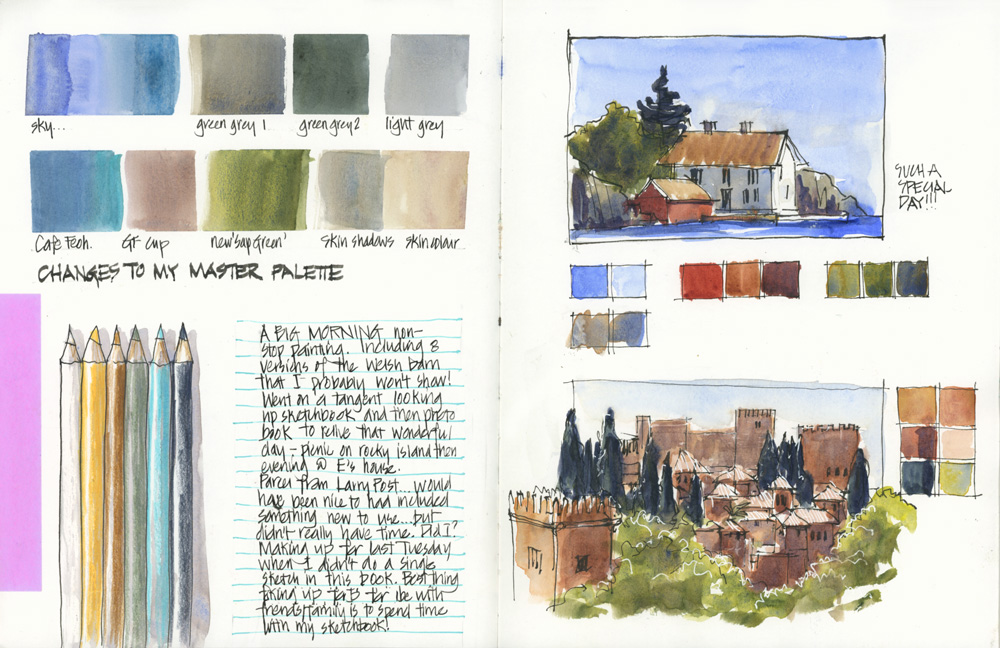 sky...
green grey 1
green grey 2
light grey
Café Feoh.
GF cup
new 'sap green'
skin shadows
skin colour
CHANGES TO MY MASTER PALETTE
A BIG MORNING non-
stop painting. Including 8
versions of the Welsh barn
that I probably won't show!
Went on a tangent looking
up sketchbook and then photo
book to relive that wonderful
day - picnic on rocky island then
evening @ E's house.
Parcel from Larry Post... would
have been nice to had included
something new to use... but
didn't really have time. Did I?
Making up for last Tuesday
when I didn't do a single
sketch in this book. Best thing
for me with
friends/family is to spend time
with my sketchbook!
SUCH A
SPECIAL
DAY!!!